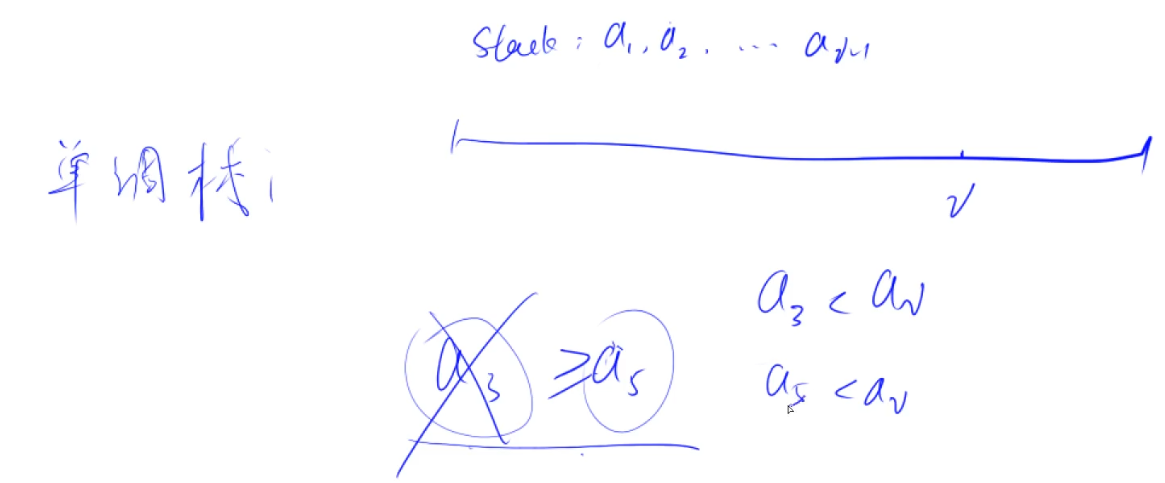 Stack: a₁, a₂, ... aᵢ₋₁
单调栈:
i
a₃ < aᵢ
a₃ ≥ a₅
a₅ < aᵢ